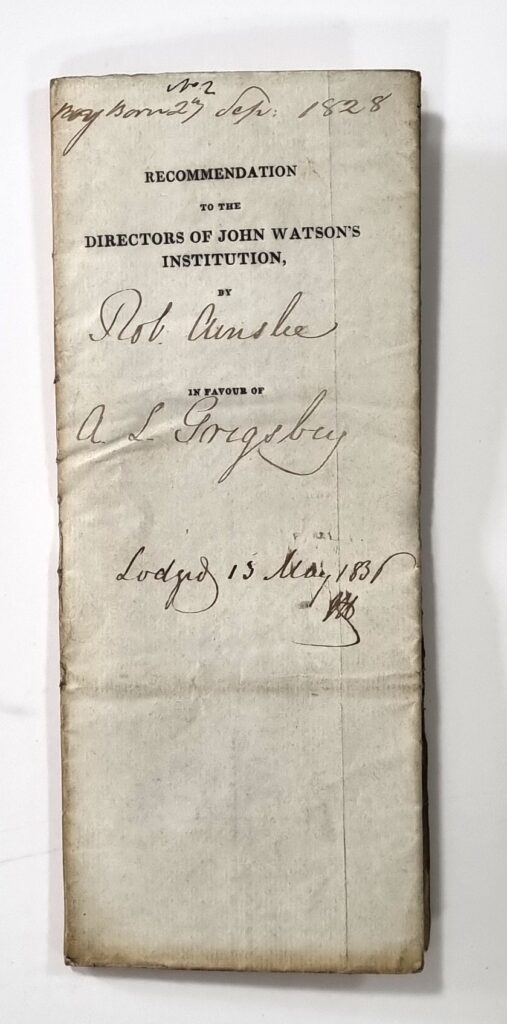 No 2
Boy Born 27 Sep: 1828
RECOMMENDATION
TO THE
DIRECTORS OF JOHN WATSON'S
INSTITUTION,
BY
Rob. Ainslie
IN FAVOUR OF
A. L. Grigsbey
Lodged 13 May